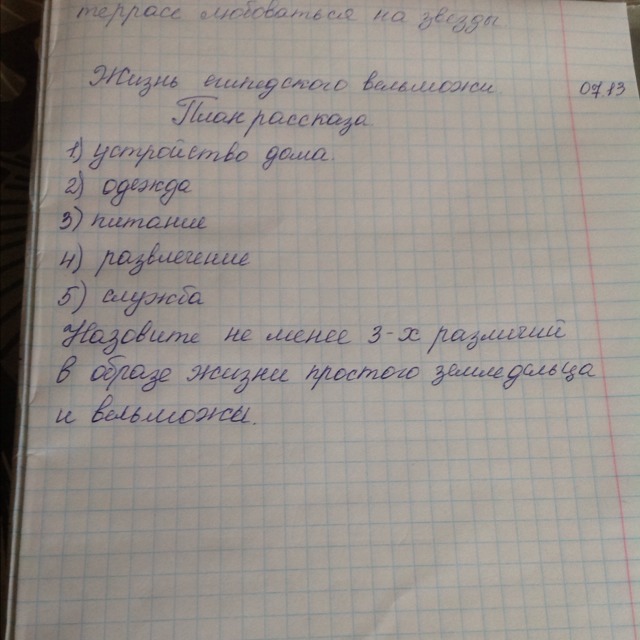 террасе любоваться на звёзды
Жизнь египедского вельможи 07.13
План рассказа
1) устройство дома.
2) одежда
3) питание
4) развлечение
5) служба
Назовите не менее 3-х различий
в образе жизни простого земледельца
и вельможы.